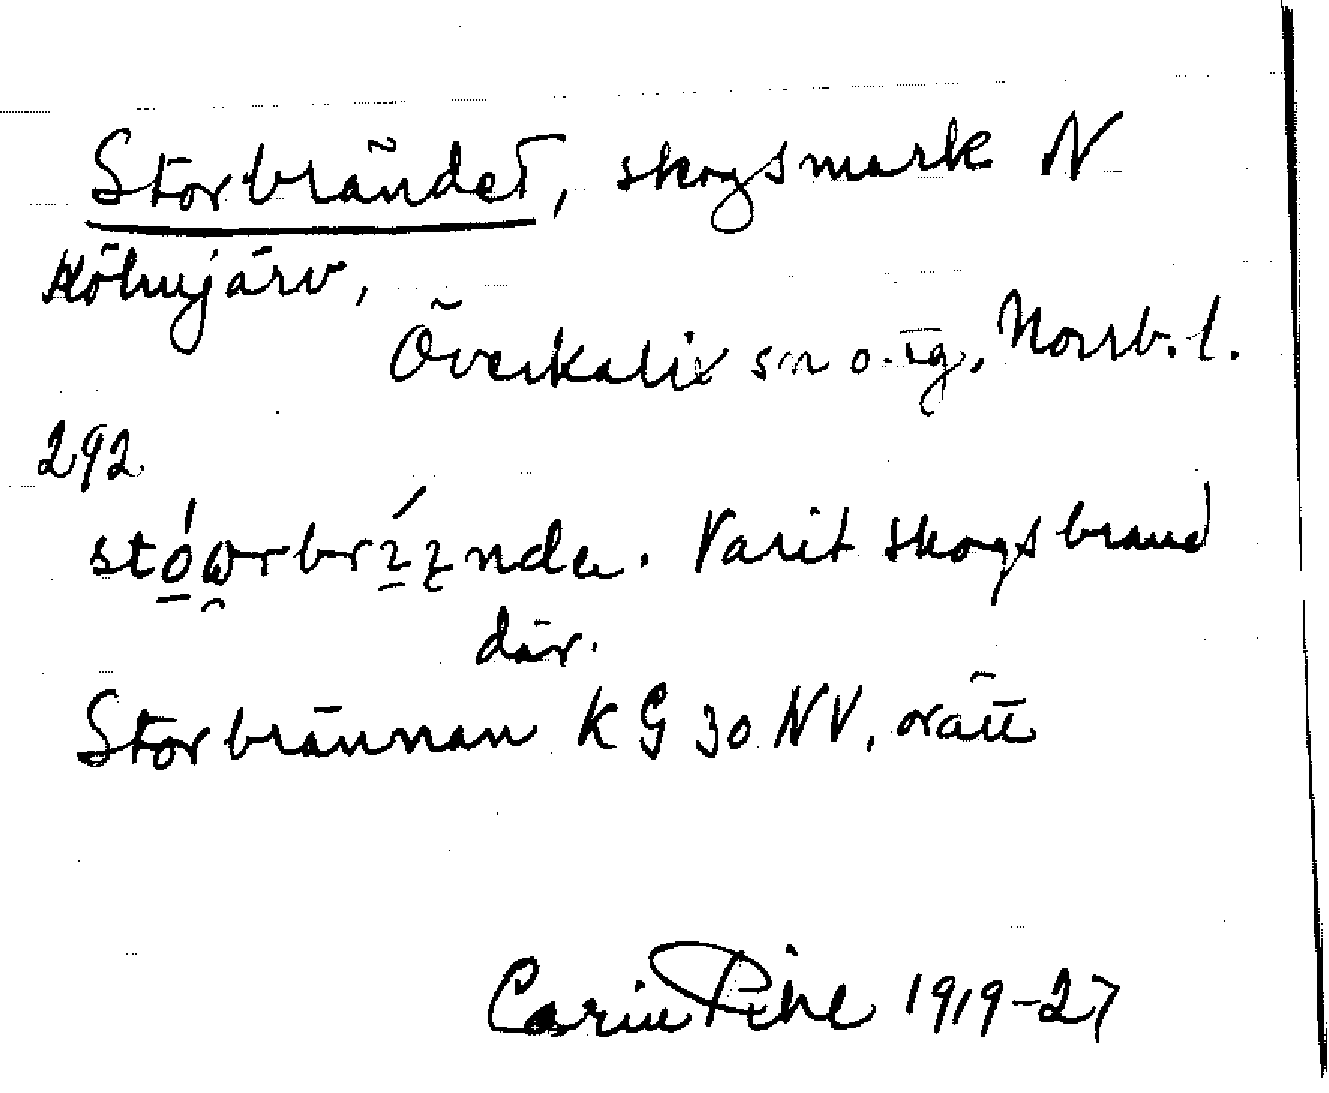 Storbrändet, skogsmark N
Kölmjärv,
Överkalix sn o. tg, Norrb. l.
292
Varit skogsbrand
där.
Storbrännan KG 30 NV, orätt
Carin Pihl 1919-27